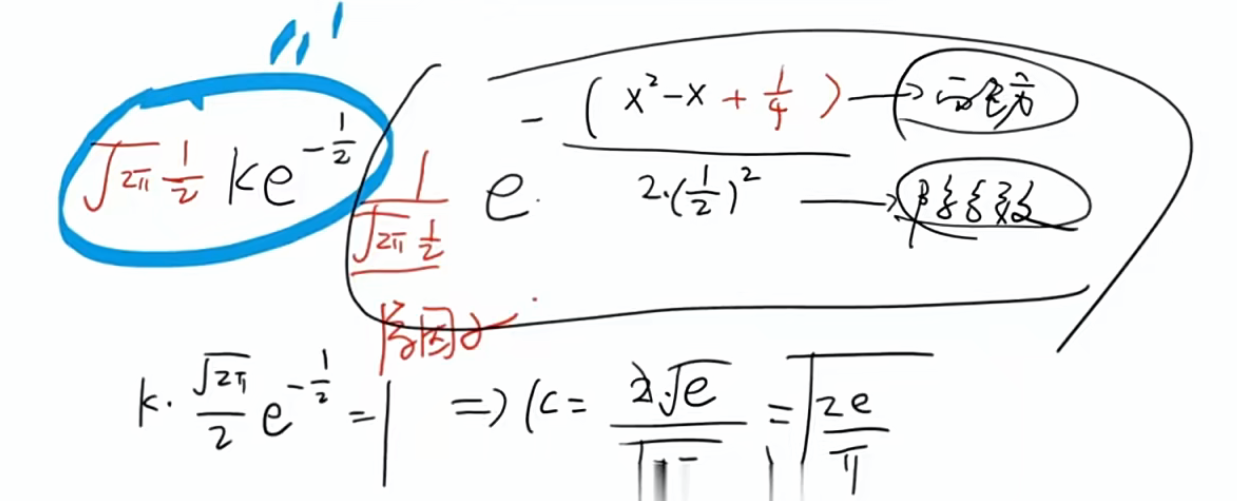 √2π 1/2 ke^(-1/2) 1/(√2π 1/2) e^(-(x²-x+1/4)/(2·(1/2)²)) → 配方
→ 除系数
除因子
k·√2π/2 e^(-1/2) = 1 ⇒ k = 2√e/√ = √(2e/π)